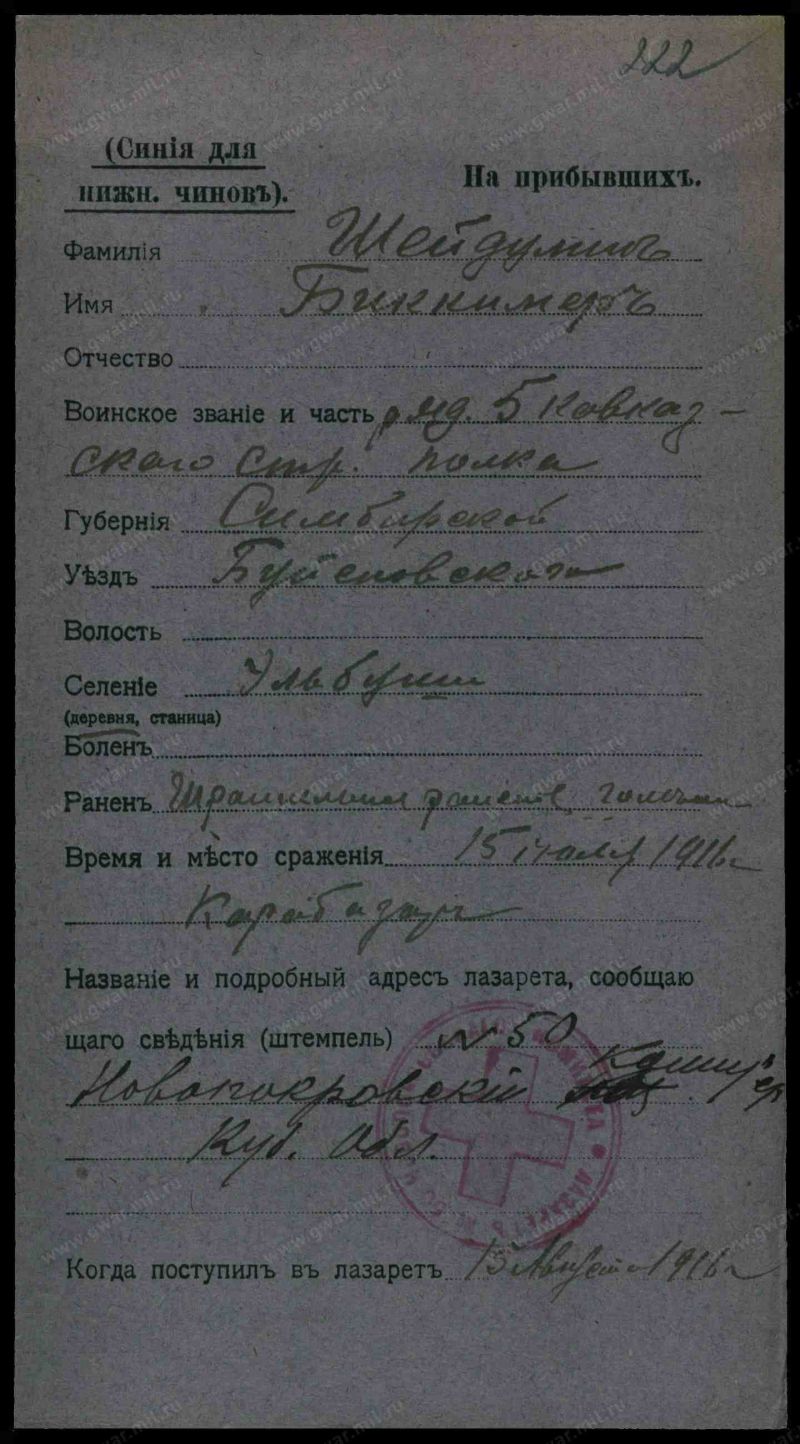 222
(Синія для
нижн. чиновъ).
На прибывшихъ.
Фамилія Шейдулинъ
Имя Биккимеръ
Отчество
Воинское званіе и часть ряд. 5 Кавказ-
скаго Стр. полка
Губернія Симбирской
Уѣздъ
Волость
Селеніе Эльбуши
(деревня, станица)
Боленъ
Раненъ голени
Время и мѣсто сраженія 15 іюля 1916 г
Названіе и подробный адресъ лазарета, сообщаю
щаго свѣдѣнія (штемпель) № 50
Новопокровскій
Куб. Обл.
Когда поступилъ въ лазаретъ 13 Августа 1916 г
www.gwar.mil.ru